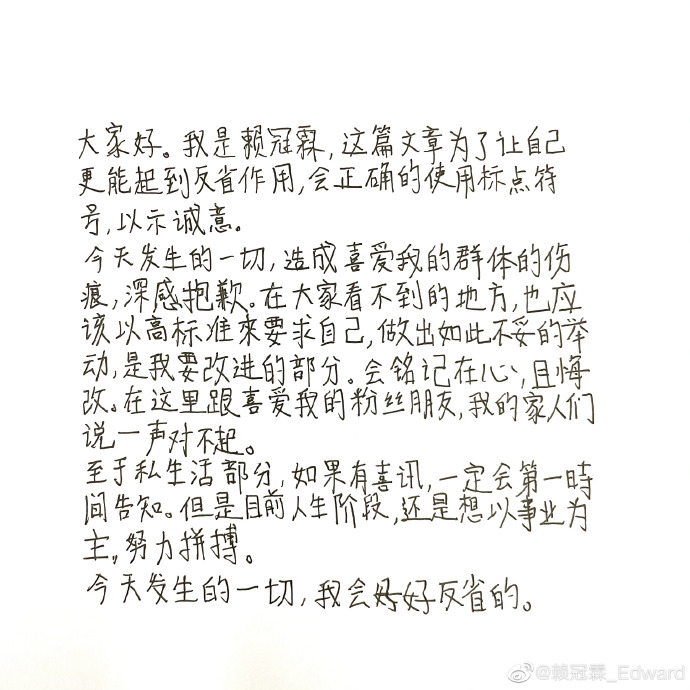 大家好。我是赖冠霖，这篇文章为了让自己
更能起到反省作用，会正确的使用标点符
号，以示诚意。
今天发生的一切，造成喜爱我的群体的伤
痕，深感抱歉。在大家看不到的地方，也应
该以高标准來要求自己，做出如此不妥的举
动，是我要改进的部分。会铭记在心，且悔
改。在这里跟喜爱我的粉丝朋友，我的家人们
说一声对不起。
至于私生活部分，如果有喜讯，一定会第一時
间告知。但是目前人生阶段，还是想以事业为
主，努力拼搏。
今天发生的一切，我会好好反省的。
@赖冠霖_Edward